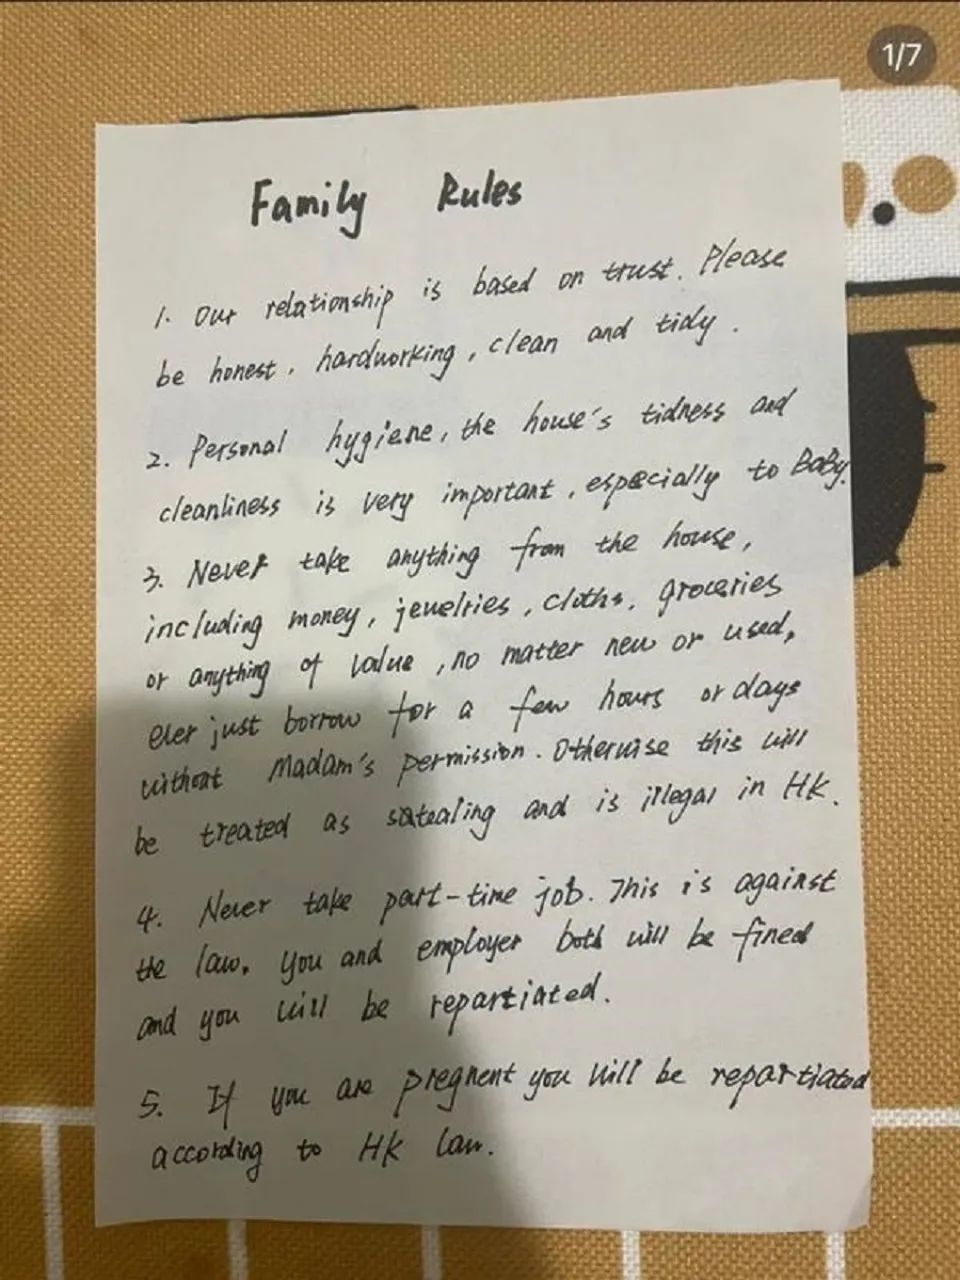 1/7
Family Rules
1. Our relationship is based on trust. Please
be honest, hardworking, clean and tidy.
2. Personal hygiene, the house's tidness and
cleanliness is very important, especially to BaBy.
3. Never take anything from the house,
including money, jewelries, cloths, groceries
or anything of value, no matter new or used,
ever just borrow for a few hours or days
without Madam's permission. Otherwise this will
be treated as satealing and is illegal in HK.
4. Never take part-time job. This is against
the law. You and employer both will be fined
and you will be repartiated.
5. If you are pregnent you will be repartiated
according to HK law.